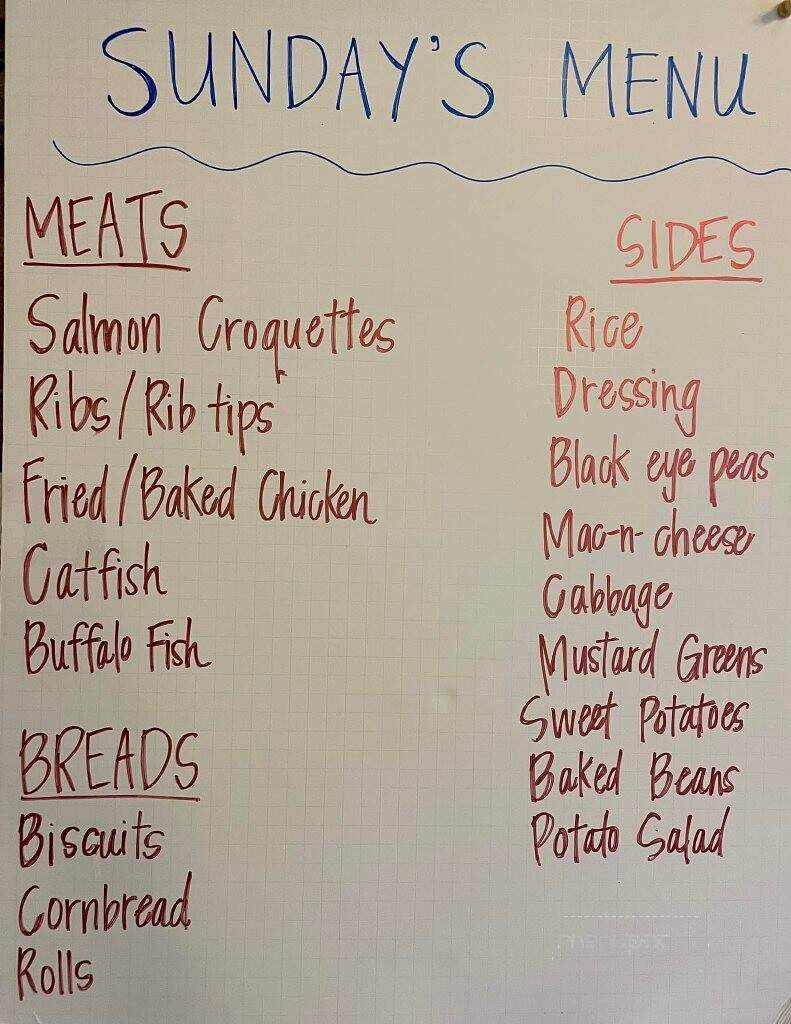 SUNDAY'S MENU
MEATS
Salmon Croquettes
Ribs/Rib tips
Fried/Baked Chicken
Catfish
Buffalo Fish
BREADS
Biscuits
Cornbread
Rolls
SIDES
Rice
Dressing
Black eye peas
Mac-n-cheese
Cabbage
Mustard Greens
Sweet Potatoes
Baked Beans
Potato Salad